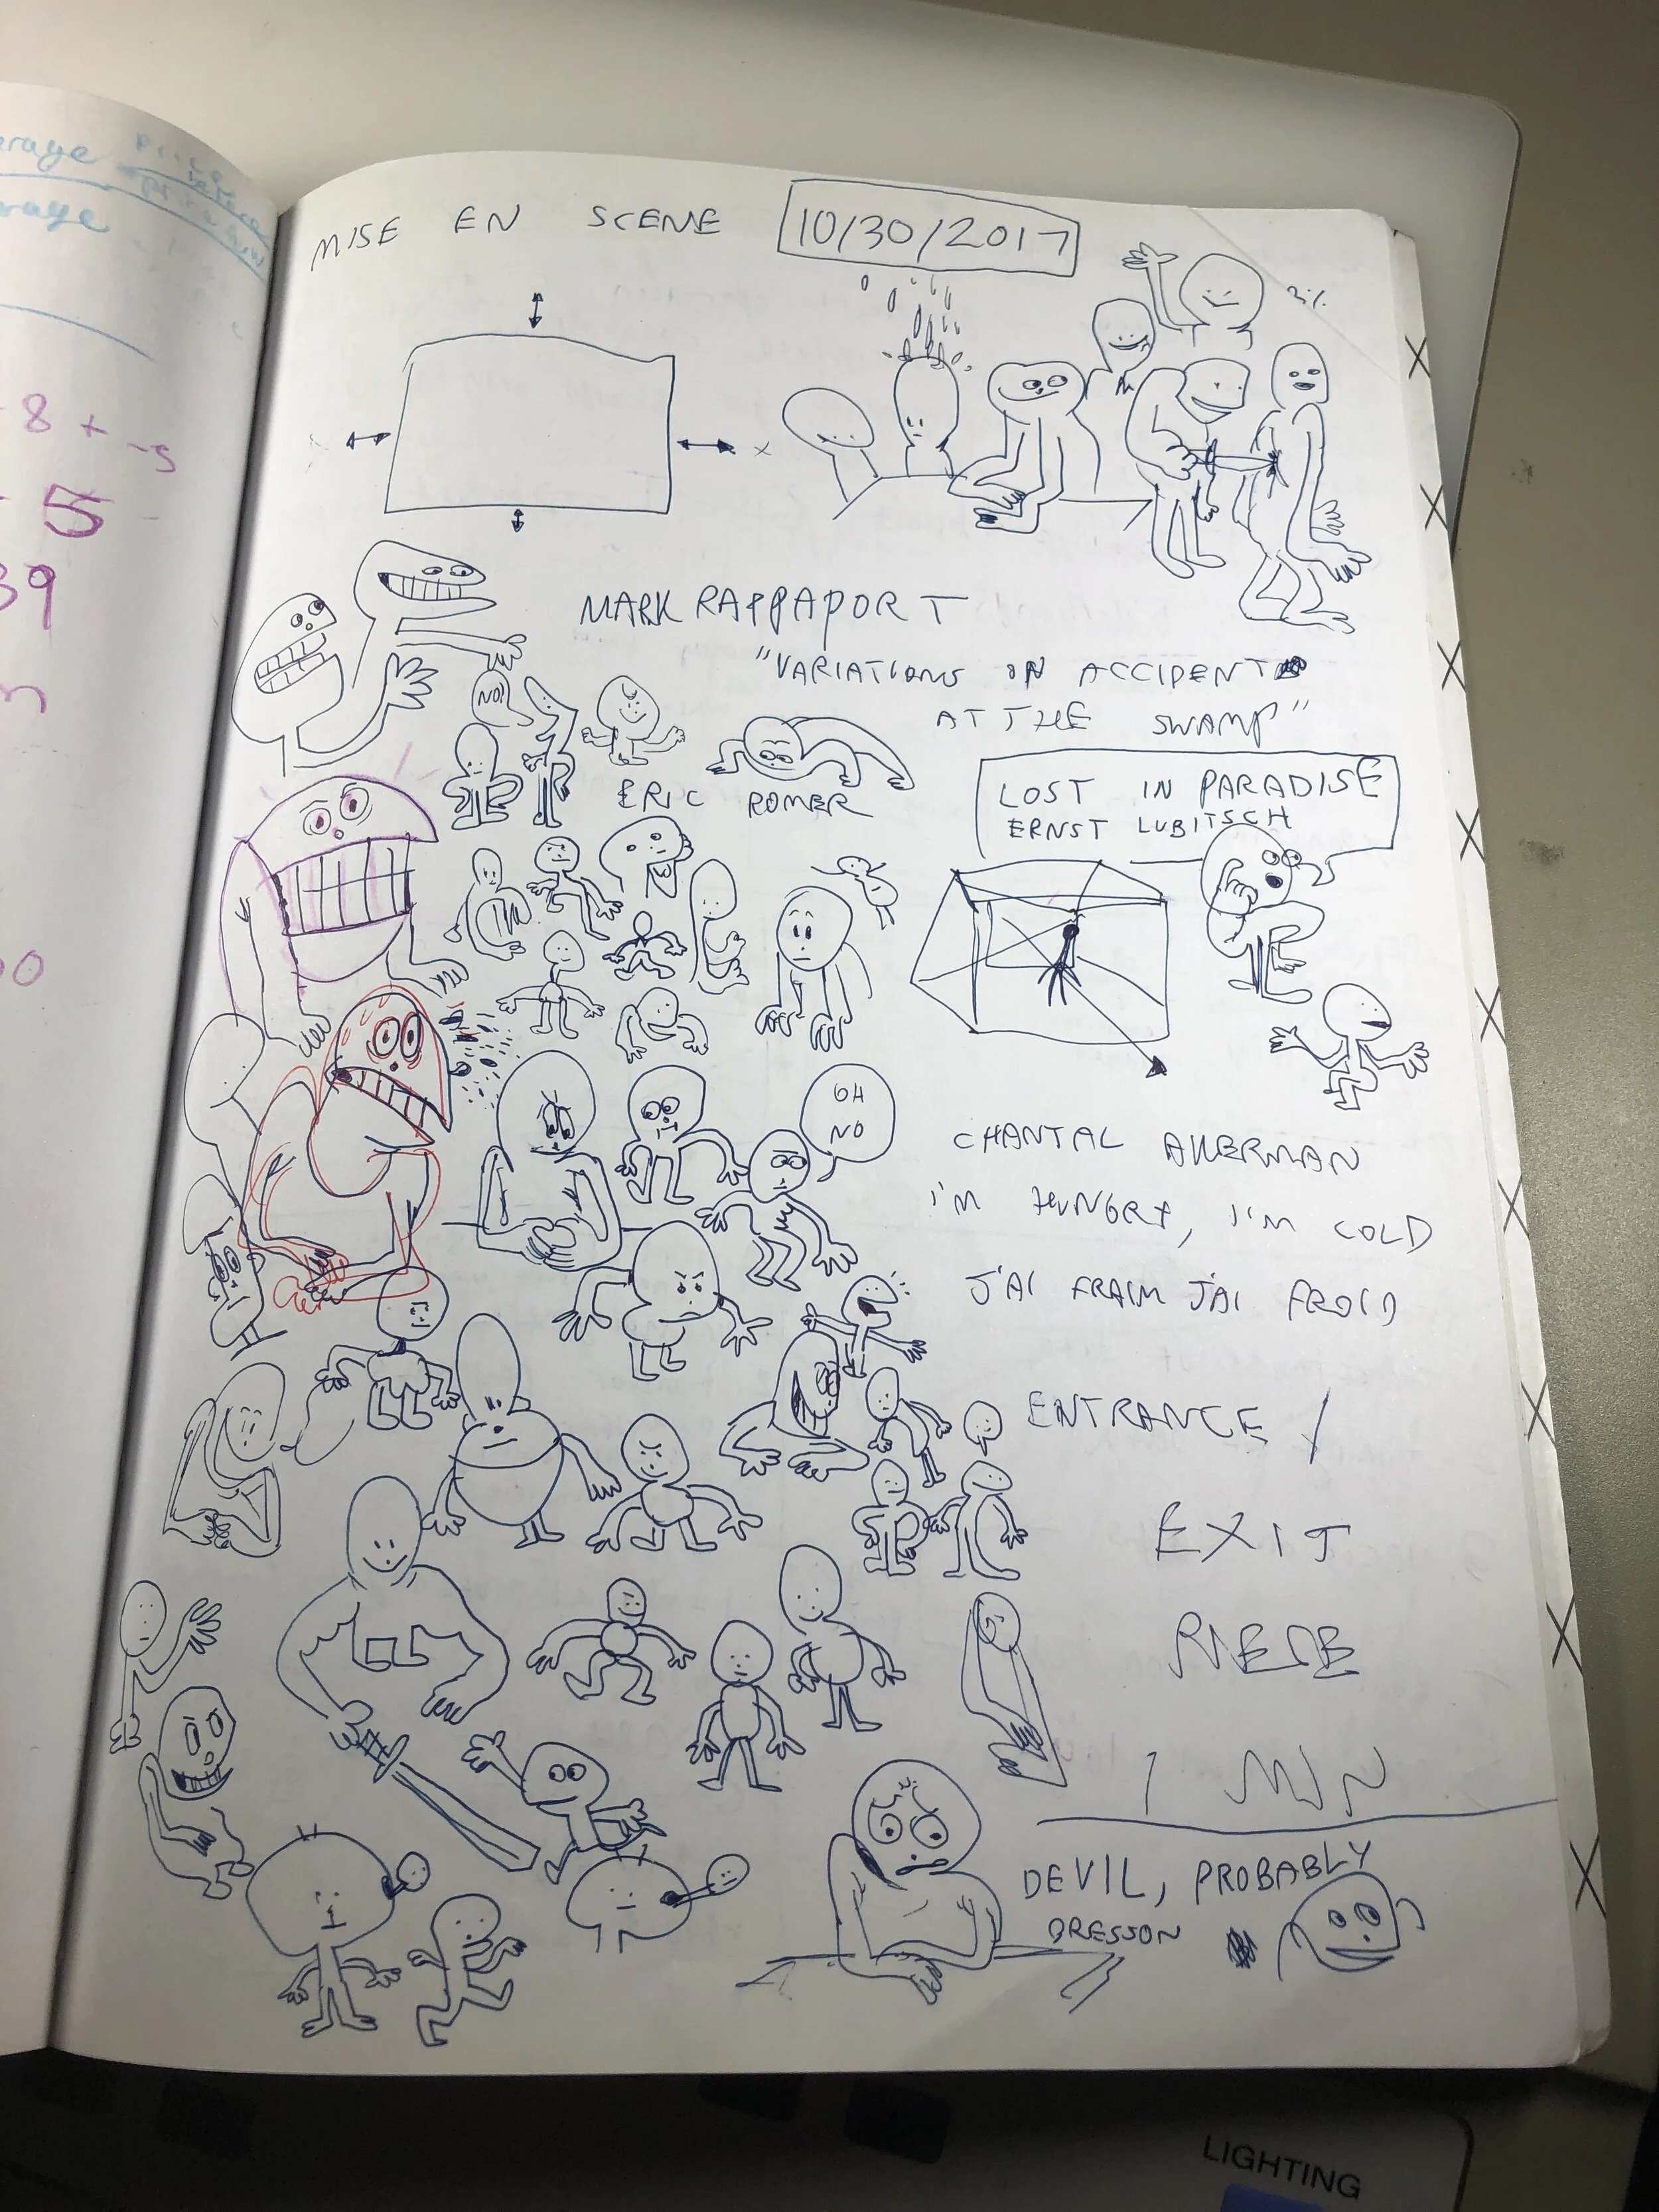 MISE EN SCENE 10/30/2017
MARK RAPPAPORT
"VARIATIONS ON ACCIDENT
AT THE SWAMP"
NO!
ERIC ROMER
LOST IN PARADISE
ERNST LUBITSCH
OH
NO
CHANTAL AKERMAN
I'M HUNGRY, I'M COLD
J'AI FRAIM J'AI FROID
ENTRANCE /
EXIT
PIECE
1 MIN
DEVIL, PROBABLY
BRESSON
erage
erage
- 8 + -5
- 5
39
LIGHTING